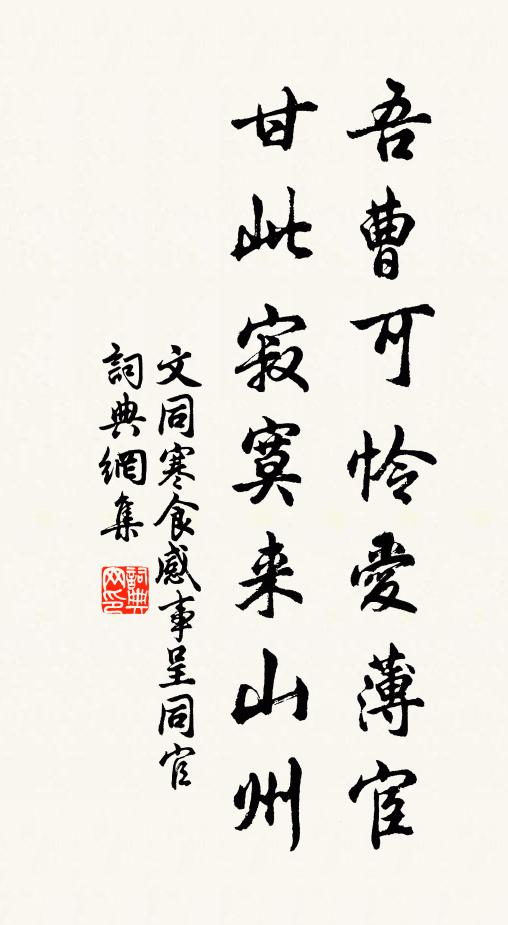 吾曹可怜愛薄宦
甘此寂寞来山州
文同寒食感事呈同官
詞典網集
詞典網印